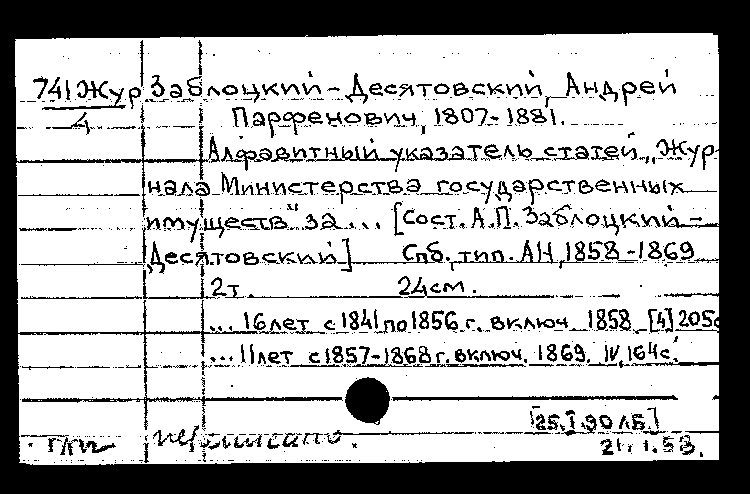 741 Жур Заблоцкий-Десятовский, Андрей
4 Парфенович, 1807-1881.
Алфавитный указатель статей „Жур-
нала Министерства государственных
имуществ" за ... [Сост. А.П. Заблоцкий-
Десятовский] Спб., тип. АН, 1858-1869
2т. 24см.
... 16лет с 1841 по 1856 г. включ. 1858 [4] 205с
... 11лет с 1857-1868 г. включ. 1869. IV, 164с.
[25.I.90 ЛБ.]
переписано. 21.1.58.